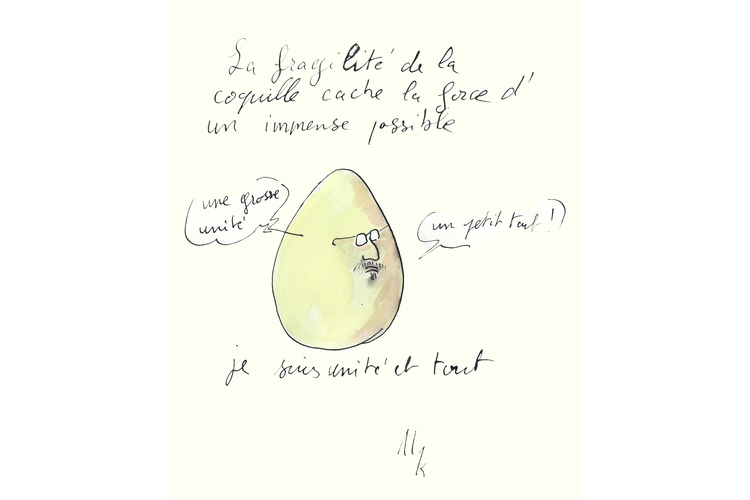 La fragilité de la
coquille cache la force d'
un immense possible
une grosse
unité
un petit tout !
je suis unité et tout